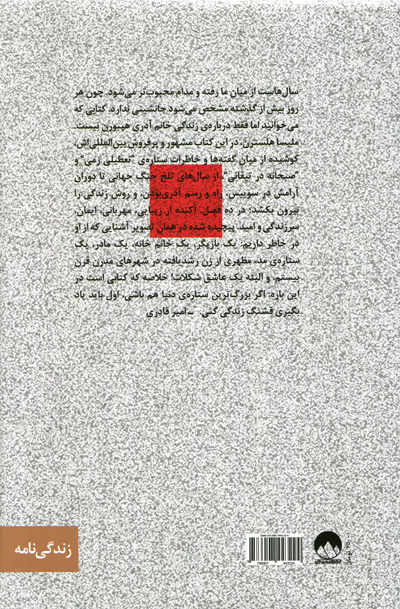 سال‌هاست از میان ما رفته و مدام محبوب‌تر می‌شود. چون هر
روز بیش از گذشته مشخص می‌شود جانشینی ندارد. کتابی که
می‌خوانید اما فقط درباره‌ی زندگی خانم آدری هیپبورن نیست.
ملیسا هلسترن، در این کتاب مشهور و پرفروش بین‌المللی‌اش،
کوشیده از میان گفته‌ها و خاطرات ستاره‌ی "تعطیلی رُمی" و
"صبحانه در تیفانی"، از سال‌های تلخ جنگ جهانی تا دوران
آرامش در سوییس، راه و رسم آدری‌بودن، و روش زندگی‌را
بیرون بکشد: در ده فصل. آکنده از زیبایی، مهربانی، ایمان،
سرزندگی و امید. پیچیده شده در همان تصویر آشنایی که از او
در خاطر داریم: یک بازیگر، یک خانم خانه، یک مادر، یک
ستاره‌ی مد، مظهری از زن رشدیافته در شهرهای مدرن قرن
بیستم، و البته یک عاشق شکلات! خلاصه که کتابی است در
این باره: اگر بزرگ‌ترین ستاره‌ی دنیا هم باشی، اول باید یاد
بگیری قشنگ زندگی کنی. ــ امیر قادری
زندگی‌نامه